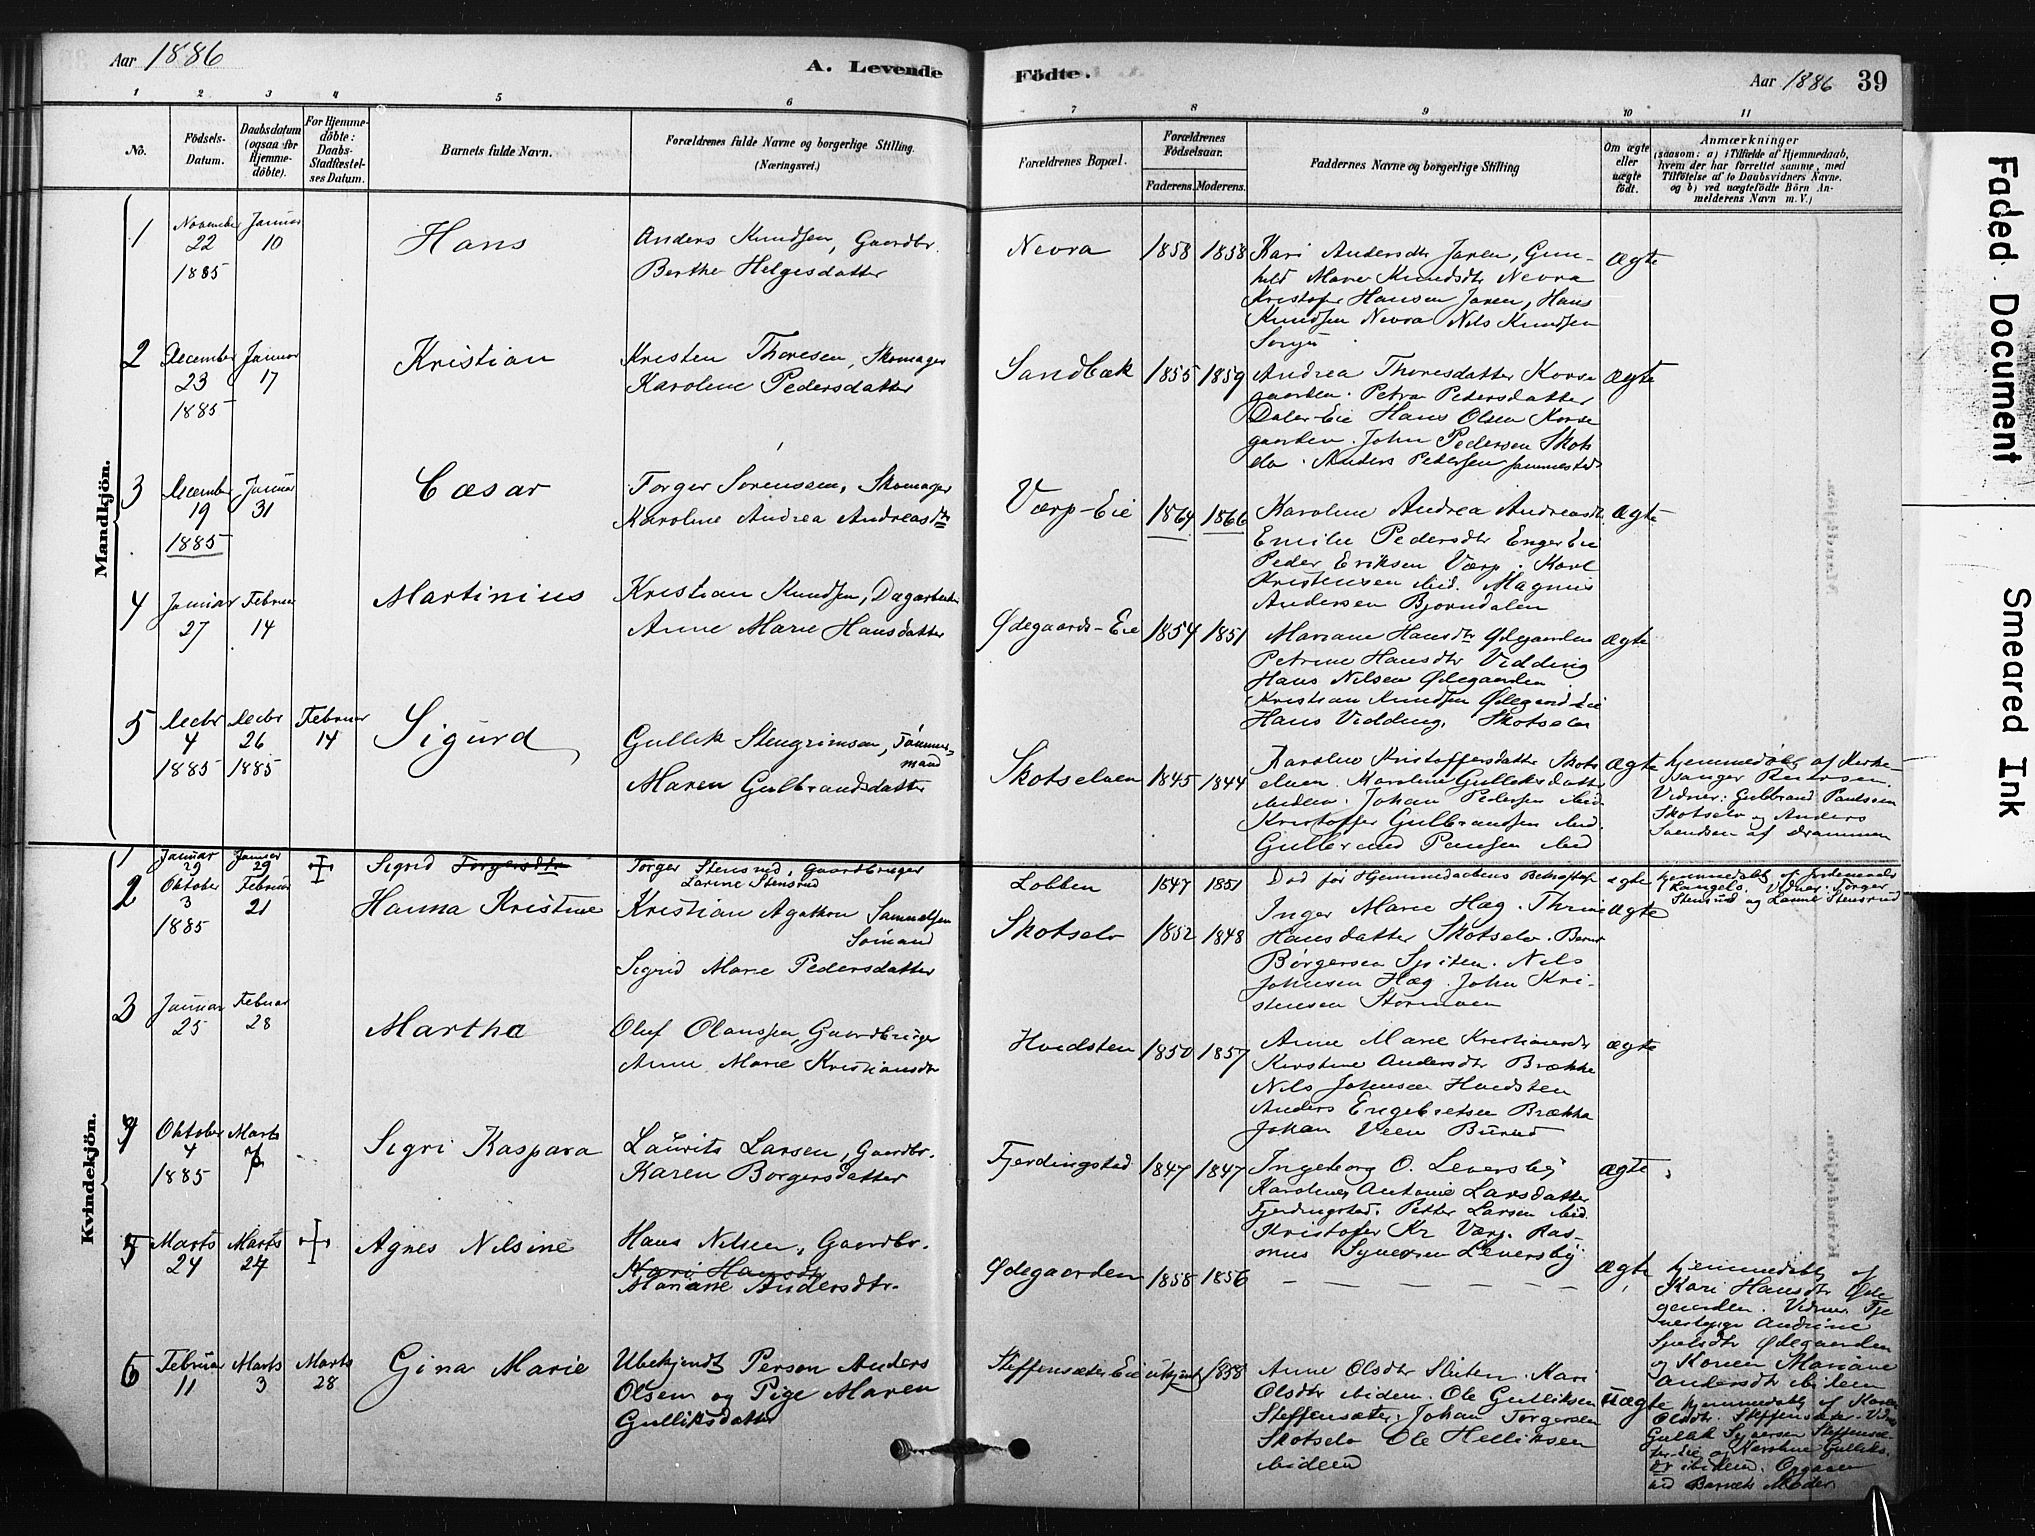 Aar 1886
A. Levende
Födte.
Aar 1886
39
1 2 3 4 5 6 7 8 9 10 11
No.
Födsels-Datum.
Daabsdatum (ogsaa for Hjemme-döbte).
For Hjemme-döbte: Daabs-Stadfæstel-ses Datum.
Barnets fulde Navn.
Forældrenes fulde Navne og borgerlige Stilling. (Næringsvei.)
Forældrenes Bopæl.
Forældrenes Födselsaar.
Faderens. Moderens.
Faddernes Navne og borgerlige Stilling
Om ægte eller uægte födt.
Anmærkninger
(saasom: a) i Tilfælde af Hjemmedaab, hvem der har forrettet samme, med Tilföielse af to Daabsvidners Navne. og b) ved uægtefödte Börn An-melderens Navn m. V.)
Mandkjön.
1 November 22 1885 Januar 10 Hans
Anders Knudsen, Gaardbr.
Berthe Helgesdatter
Nevra 1858 1858
Kari Andersdtr Jaren, Gun-
hild Marie Knudsdtr Nevra
Kristofer Hansen Jaren, Hans
Knudsen Nevra Nils Knudsen
Ægte
2 December 23 1885 Januar 17 Kristian
Kristen Thoresen, Skomager
Karoline Pedersdatter
Sandbæk 1855 1859
Andrea Thoresdatter Korse
gaarden. Petra Pedersdatter
Daler-Eie Hans Olsen Korse
gaarden. John Pedersen Skots
elv. Anders Petersen sammesteds
Ægte
3 December 19 1885 Januar 31 Cæsar
Torger Sorensen, Skomager
Karoline Andrea Andreasdtr
Værp-Eie 1864 1866
Karoline Andrea Andreasdtr.
Emilie Pedersdtr Enger Eie
Peder Eriksen Værp. Karl
Kristensen ibid. Magnus
Andersen Bjorndalen
Ægte
4 Januar 27 Februar 14 Martinius
Kristian Knudsen, Dagarbeider
Anne Marie Hansdatter
Ødegaards-Eie 1854 1851
Mariane Hansdtr Ødegaarden
Petrine Hansdtr Vidding
Hans Nilsen Ødegaarden
Kristian Knudsen Ødegaard Eie
Hans Vidding, Skotselv
Ægte
5 Decbr 4 1885 Decbr 26 1885 Februar 14 Sigurd
Gullik Stengrimsen, Tömmer-
mand
Maren Gulbrandsdatter
Skotselven 1845 1844
Karoline Kristoffersdatter Skots
elven. Karoline Gulliksdatter
ibidem. Johan Pedersen ibid.
Kristoffer Gulbrandsen ibid.
Gulbrand Paulsen ibid
Ægte
hjemmedöbt af Kirke-
sanger
Vidner: Gulbrand Paulsen
Skotselv og Anders
Svendsen af Drammen
Kvindekjön.
1 Januar 29 Januar 29 Sigrid Torgersdtr
Torger Stensrud, Gaardbruger
Larine Stensrud
Lobben 1847 1851
Död för Hjemmedaabens Bekræftelse
ægte
hjemmedöbt af Jordemoder
Vidner: Torger
Stensrud og Larine Stensrud
2 Oktober 3 1885 Februar 21 Hanna Kristine
Kristian Agathon Samuelsen
Sömand
Sigrid Marie Pedersdatter
Skotselv 1852 1848
Inger Marie Hæg. Thrine
Hansdatter Skotselv. Bernt
Börgersen Sjoiten. Nils
Johnsen Hæg. John Kri-
stensen Stormoen
Ægte
3 Januar 25 Februar 28 Martha
Oluf Olaussen, Gaardbruger
Anne Marie Kristiansdtr
Hvidsten 1850 1857
Anne Marie Kristiansdtr
Kirstine Andersdtr Brække
Nils Johnsen Hvidsten
Anders Engebretsen Brækka
Johan Veen Burud
ægte
4 Oktober 4 1885 Marts 7 Sigri Kaspara
Laurits Larsen, Gaardbr.
Karen Borgersdatter
Fjerdingstad 1847 1847
Ingeborg O. Leversby
Karoline Antonie Larsdatter
Fjerdingstad. Petter Larsen ibid.
Kristofer Kr Værp. Ras-
mus Syversen Leversby
Ægte
5 Marts 24 Marts 24 Agnes Nilsine
Hans Nilsen, Gaardbr.
Kari Hansdtr
Mariane Andersdtr.
Ødegaarden 1858 1856
— — — — —
Ægte
hjemmedöbt af
Kari Hansdtr Øde
gaarden. Vidner Tje
nestepige Andrine
Ødegaarden
og Konen Mariane
Andersdtr ibidem
6 Februar 11 Marts 3 Marts 28 Gina Marie
Ubekjendt Person Anders
Olsen og Pige Maren
Gulliksdatter
Steffensæter Eie ukjent 1858
Anne Olsdtr Sliten. Kari
Olsdtr ibidem. Ole Gulliksen
Steffensæter. Johan Torgersen
Skotselv Ole Helliksen
ibidem
Uægte
hjemmedöbt af Maren
Olsdtr. Steffensæter. Vidner
Gullik Syversen Steffensæ-
ter-Eie og Karoline Gulliks-
dtr ibidem. Opgaven
ved Barnets Moder
Faded Document
Smeared Ink